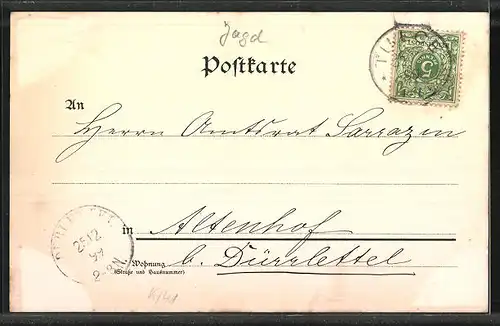 Jagd
Postkarte
An
Herrn Amtsrat Sarrazin
in Altenhof
Wohnung
(Straße und Hausnummer)
b. Dürrlettel
25 12
99
2-3N.
5